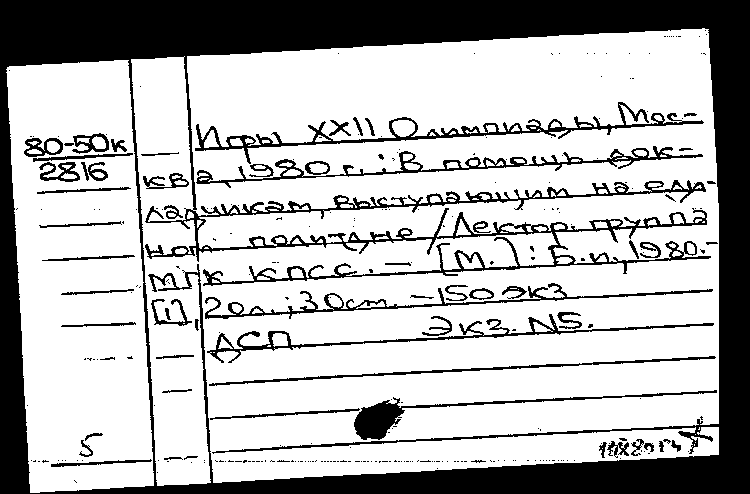 80-50к
2816
Игры XXII Олимпиады, Мос-
ква, 1980 г. : В помощь док-
ладчикам, выступающим на еди-
ном политдне / Лектор. группа
МГК КПСС. — [М.] : Б.и., 1980.-
[1], 20л.; 30см. — 150 экз
ДСП Экз. N5.
5